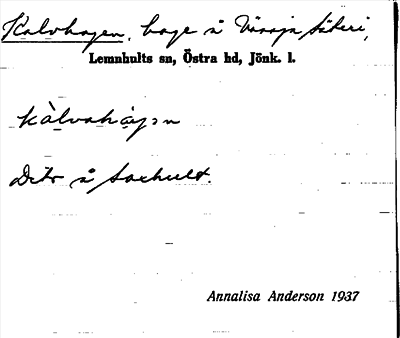 Kalvhagen, hage å Värsja säteri,
Lemnhults sn, Östra hd, Jönk. l.
kàlvahag̣ən
Dito å Saxhult.
Annalisa Anderson 1937